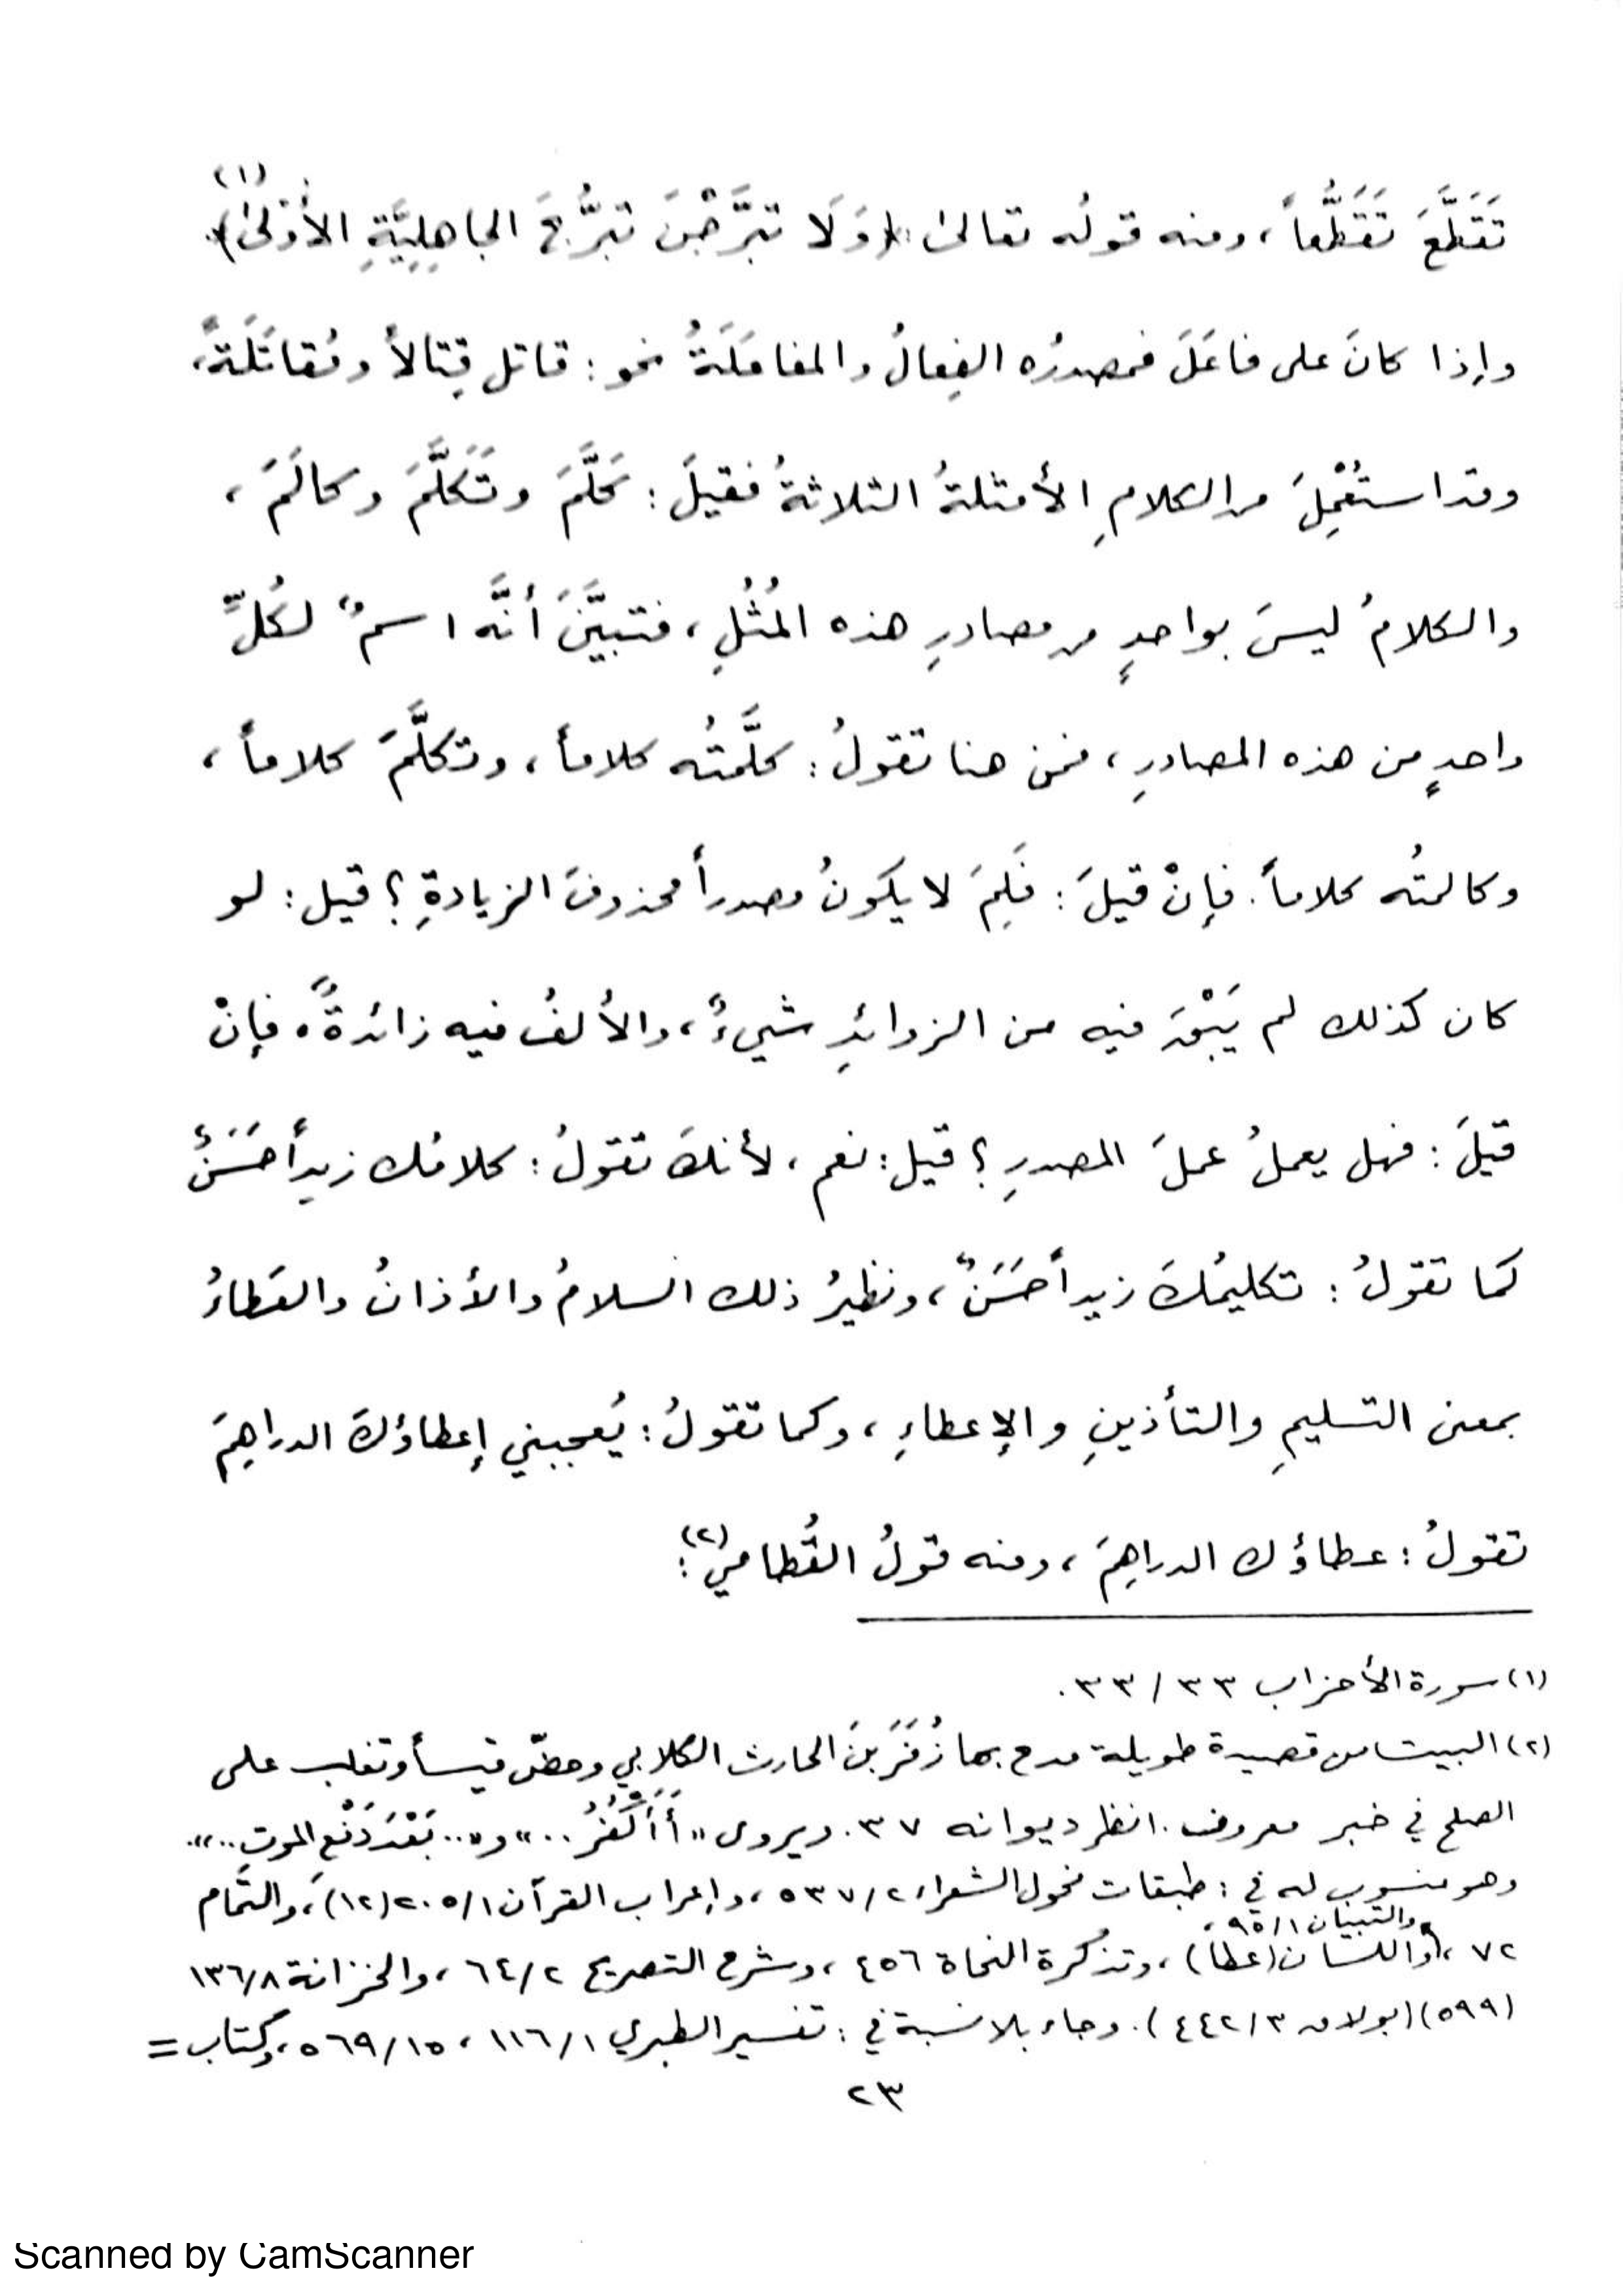 تَقَطَّعَ تَقَطُّعاً، ومنه قولُه تعالىٰ: ﴿وَلَا تَبَرَّجْنَ تَبَرُّجَ الجاهِلِيَّةِ الأُوْلىٰ﴾(١)
وإذا كانَ على فاعَلَ فمصدرُه الفِعالُ والمفاعَلَةُ نحو: قاتل قِتالاً ومُقاتَلَةً،
وقد استُعْمِلَ من الكلامِ الأمثلةُ الثلاثةُ فقيلَ: كَلَّمَ وتَكَلَّمَ وكالَمَ،
والكلامُ ليسَ بواحدٍ من مصادرِ هذه المُثُلِ، فتبيَّنَ أنَّه اسمٌ لكُلِّ
واحدٍ من هذه المصادرِ، فمن هنا تقولُ: كلَّمتُه كلاماً، وتكلَّمَ كلاماً،
وكالمتُه كلاماً. فإنْ قيلَ: فَلِمَ لا يكونُ مصدراً محذوفَ الزيادةِ؟ قيل: لو
كان كذلك لم يَبْقَ فيه من الزوائدِ شيءٌ، والألفُ فيه زائدةٌ. فإنْ
قيلَ: فهل يعملُ عملَ المصدرِ؟ قيل: نعم، لأنكَ تقولُ: كلامُك زيداً حَسَنٌ
كما تقولُ: تكليمُكَ زيداً حَسَنٌ، ونظيرُ ذلك السلامُ والأذانُ والعَطاءُ
بمعنى التسليمِ والتأذينِ والإعطاءِ، وكما تقولُ: يُعجبني إعطاؤكَ الدراهِمَ
تقولُ: عطاؤك الدراهِمَ، ومنه قولُ القُطاميّ(٢):
(١) سورة الأحزاب ٣٣/٣٣.
(٢) البيت من قصيدة طويلة مدح بها زُفَرَ بنَ الحارث الكلابي وحضّ قيساً وتغلب على
الصلح في خبر معروف. انظر ديوانه ٣٧. ويروى «أَأَكْفُرُ..» و«.. بَعْدَ دَفْعِ الموتِ..».
وهو منسوب له في: طبقات فحول الشعراء ٥٣٧/٢، وإعراب القرآن ٢٠٥/١(١٢)، والتَّمام
والتبيان ٩٥/١،
٧٢، واللسان (عطا)، وتذكرة النحاة ٤٥٦، وشرح التصريح ٦٤/٢، والخزانة ١٣٦/٨
(٥٩٩) (بولاق ٤٤٢/٣). وجاء بلا نسبة في: تفسير الطبري ١١٦/١، ٥٦٩/١٥، وكتاب =
٢٣
Scanned by CamScanner